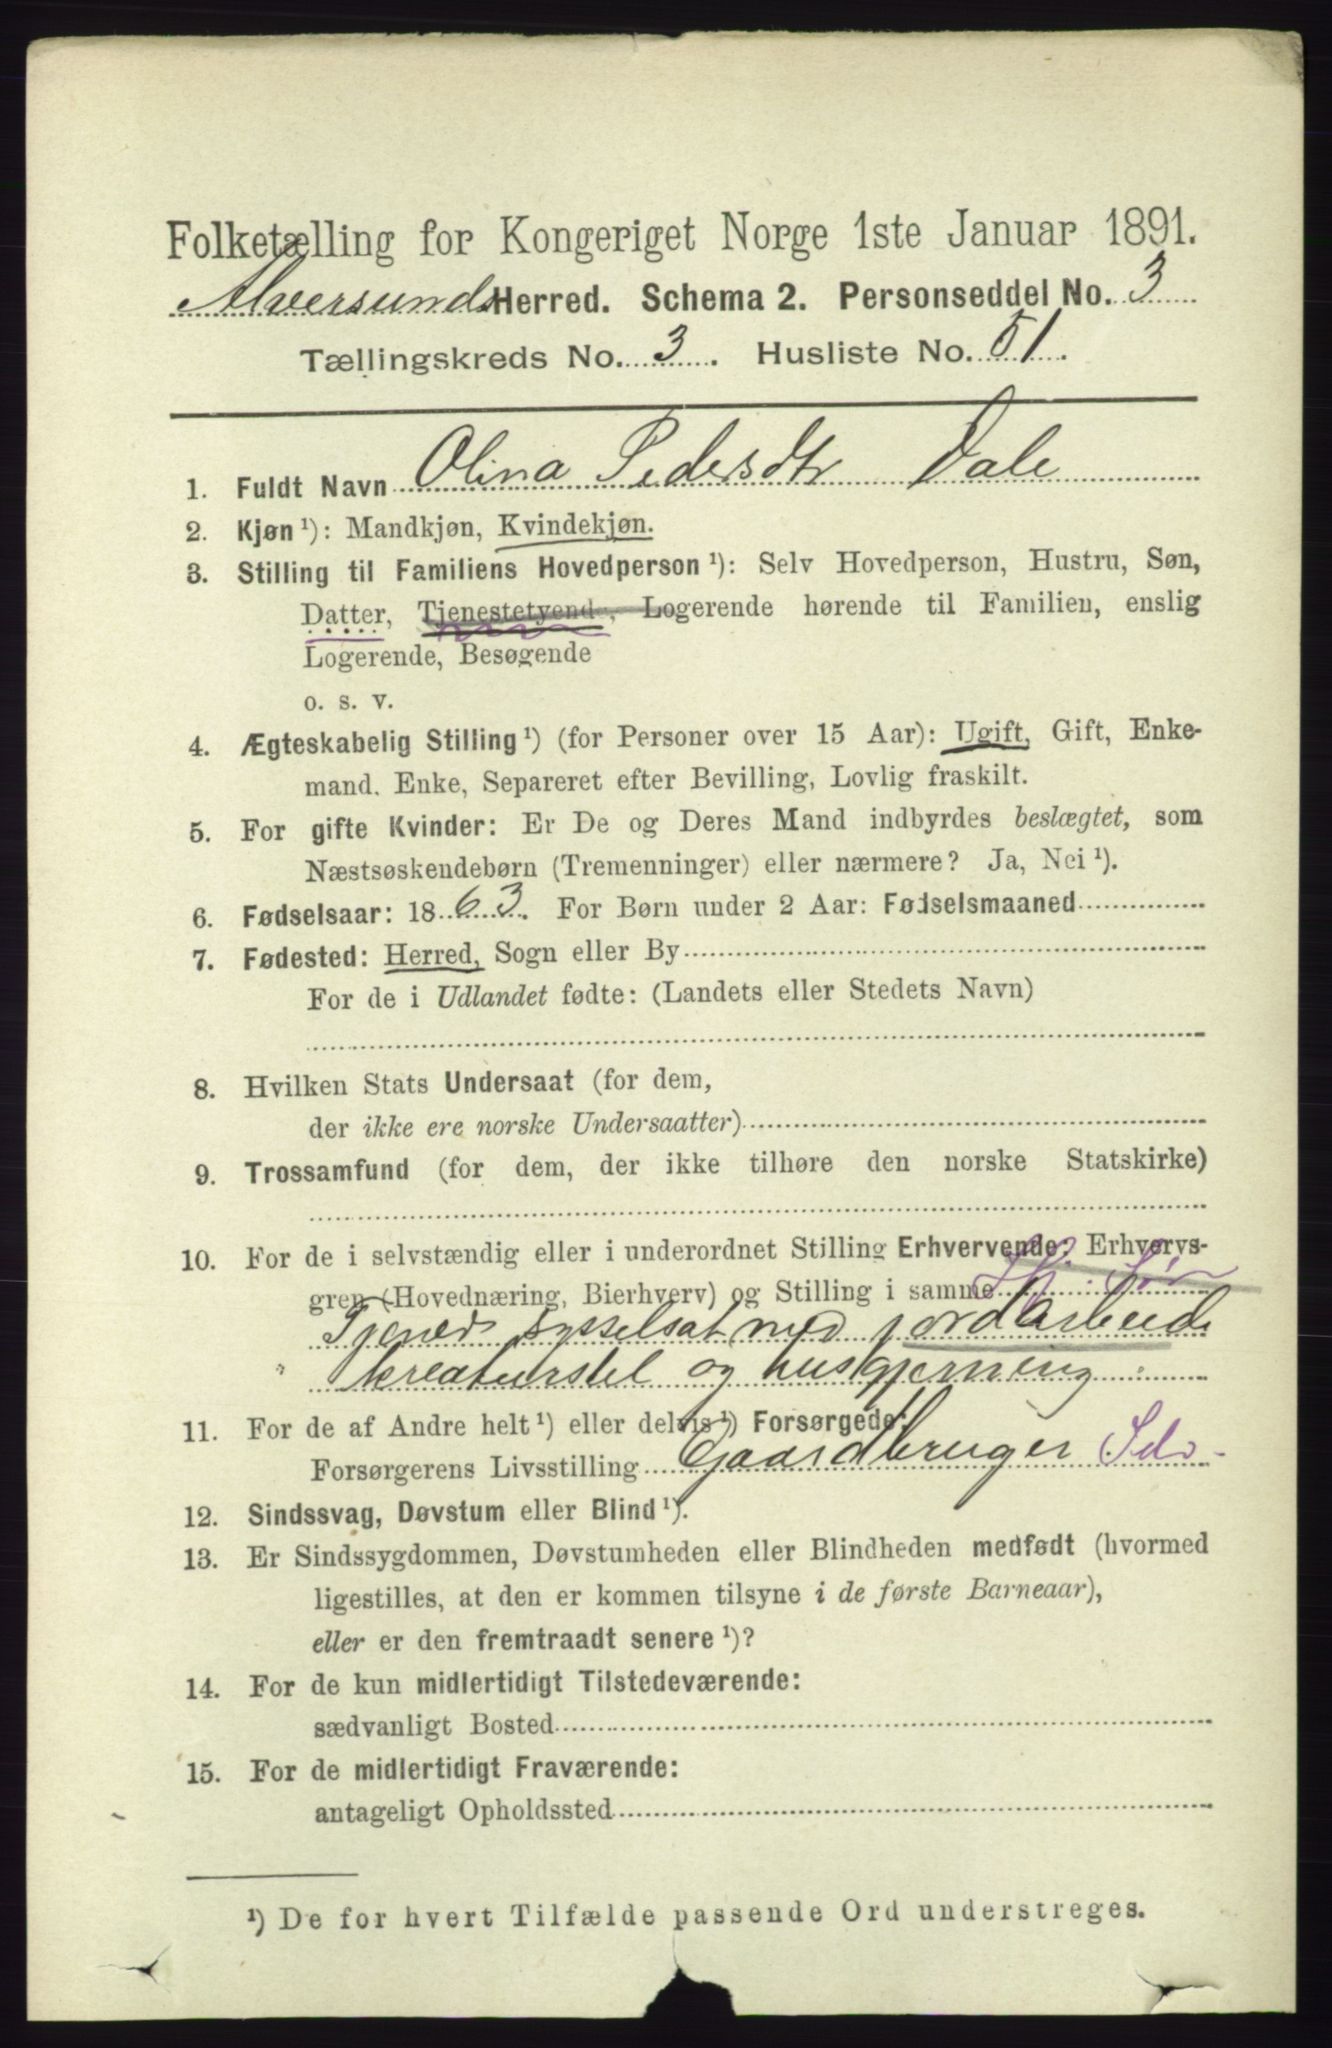 Folketælling for Kongeriget Norge 1ste Januar 1891.
Alversunds Herred. Schema 2. Personseddel No. 3
Tællingskreds No. 3. Husliste No. 51.
1. Fuldt Navn Olina Pedersdtr Dale
2. Kjøn ¹): Mandkjøn, Kvindekjøn.
3. Stilling til Familiens Hovedperson ¹): Selv Hovedperson, Hustru, Søn,
Datter, Tjenestetyend, Logerende hørende til Familien, enslig
Logerende, Besøgende
o. s. v.
4. Ægteskabelig Stilling ¹) (for Personer over 15 Aar): Ugift, Gift, Enke-
mand. Enke, Separeret efter Bevilling, Lovlig fraskilt.
5. For gifte Kvinder: Er De og Deres Mand indbyrdes beslægtet, som
Næstsøskendebørn (Tremenninger) eller nærmere? Ja, Nei ¹).
6. Fødselsaar: 1863. For Børn under 2 Aar: Fødselsmaaned
7. Fødested: Herred, Sogn eller By
For de i Udlandet fødte: (Landets eller Stedets Navn)
8. Hvilken Stats Undersaat (for dem,
der ikke ere norske Undersaatter)
9. Trossamfund (for dem, der ikke tilhøre den norske Statskirke)
10. For de i selvstændig eller i underordnet Stilling Erhvervende: Erhvervs-
gren (Hovednæring, Bierhverv) og Stilling i samme
sysselsat med jordarbeide
kreaturstel og husgjerning
11. For de af Andre helt ¹) eller delvis ¹) Forsørgede:
Forsørgerens Livsstilling Gaardbruger Selv
12. Sindssvag, Døvstum eller Blind ¹).
13. Er Sindssygdommen, Døvstumheden eller Blindheden medfødt (hvormed
ligestilles, at den er kommen tilsyne i de første Barneaar),
eller er den fremtraadt senere ¹)?
14. For de kun midlertidigt Tilstedeværende:
sædvanligt Bosted
15. For de midlertidigt Fraværende:
antageligt Opholdssted
¹) De for hvert Tilfælde passende Ord understreges.